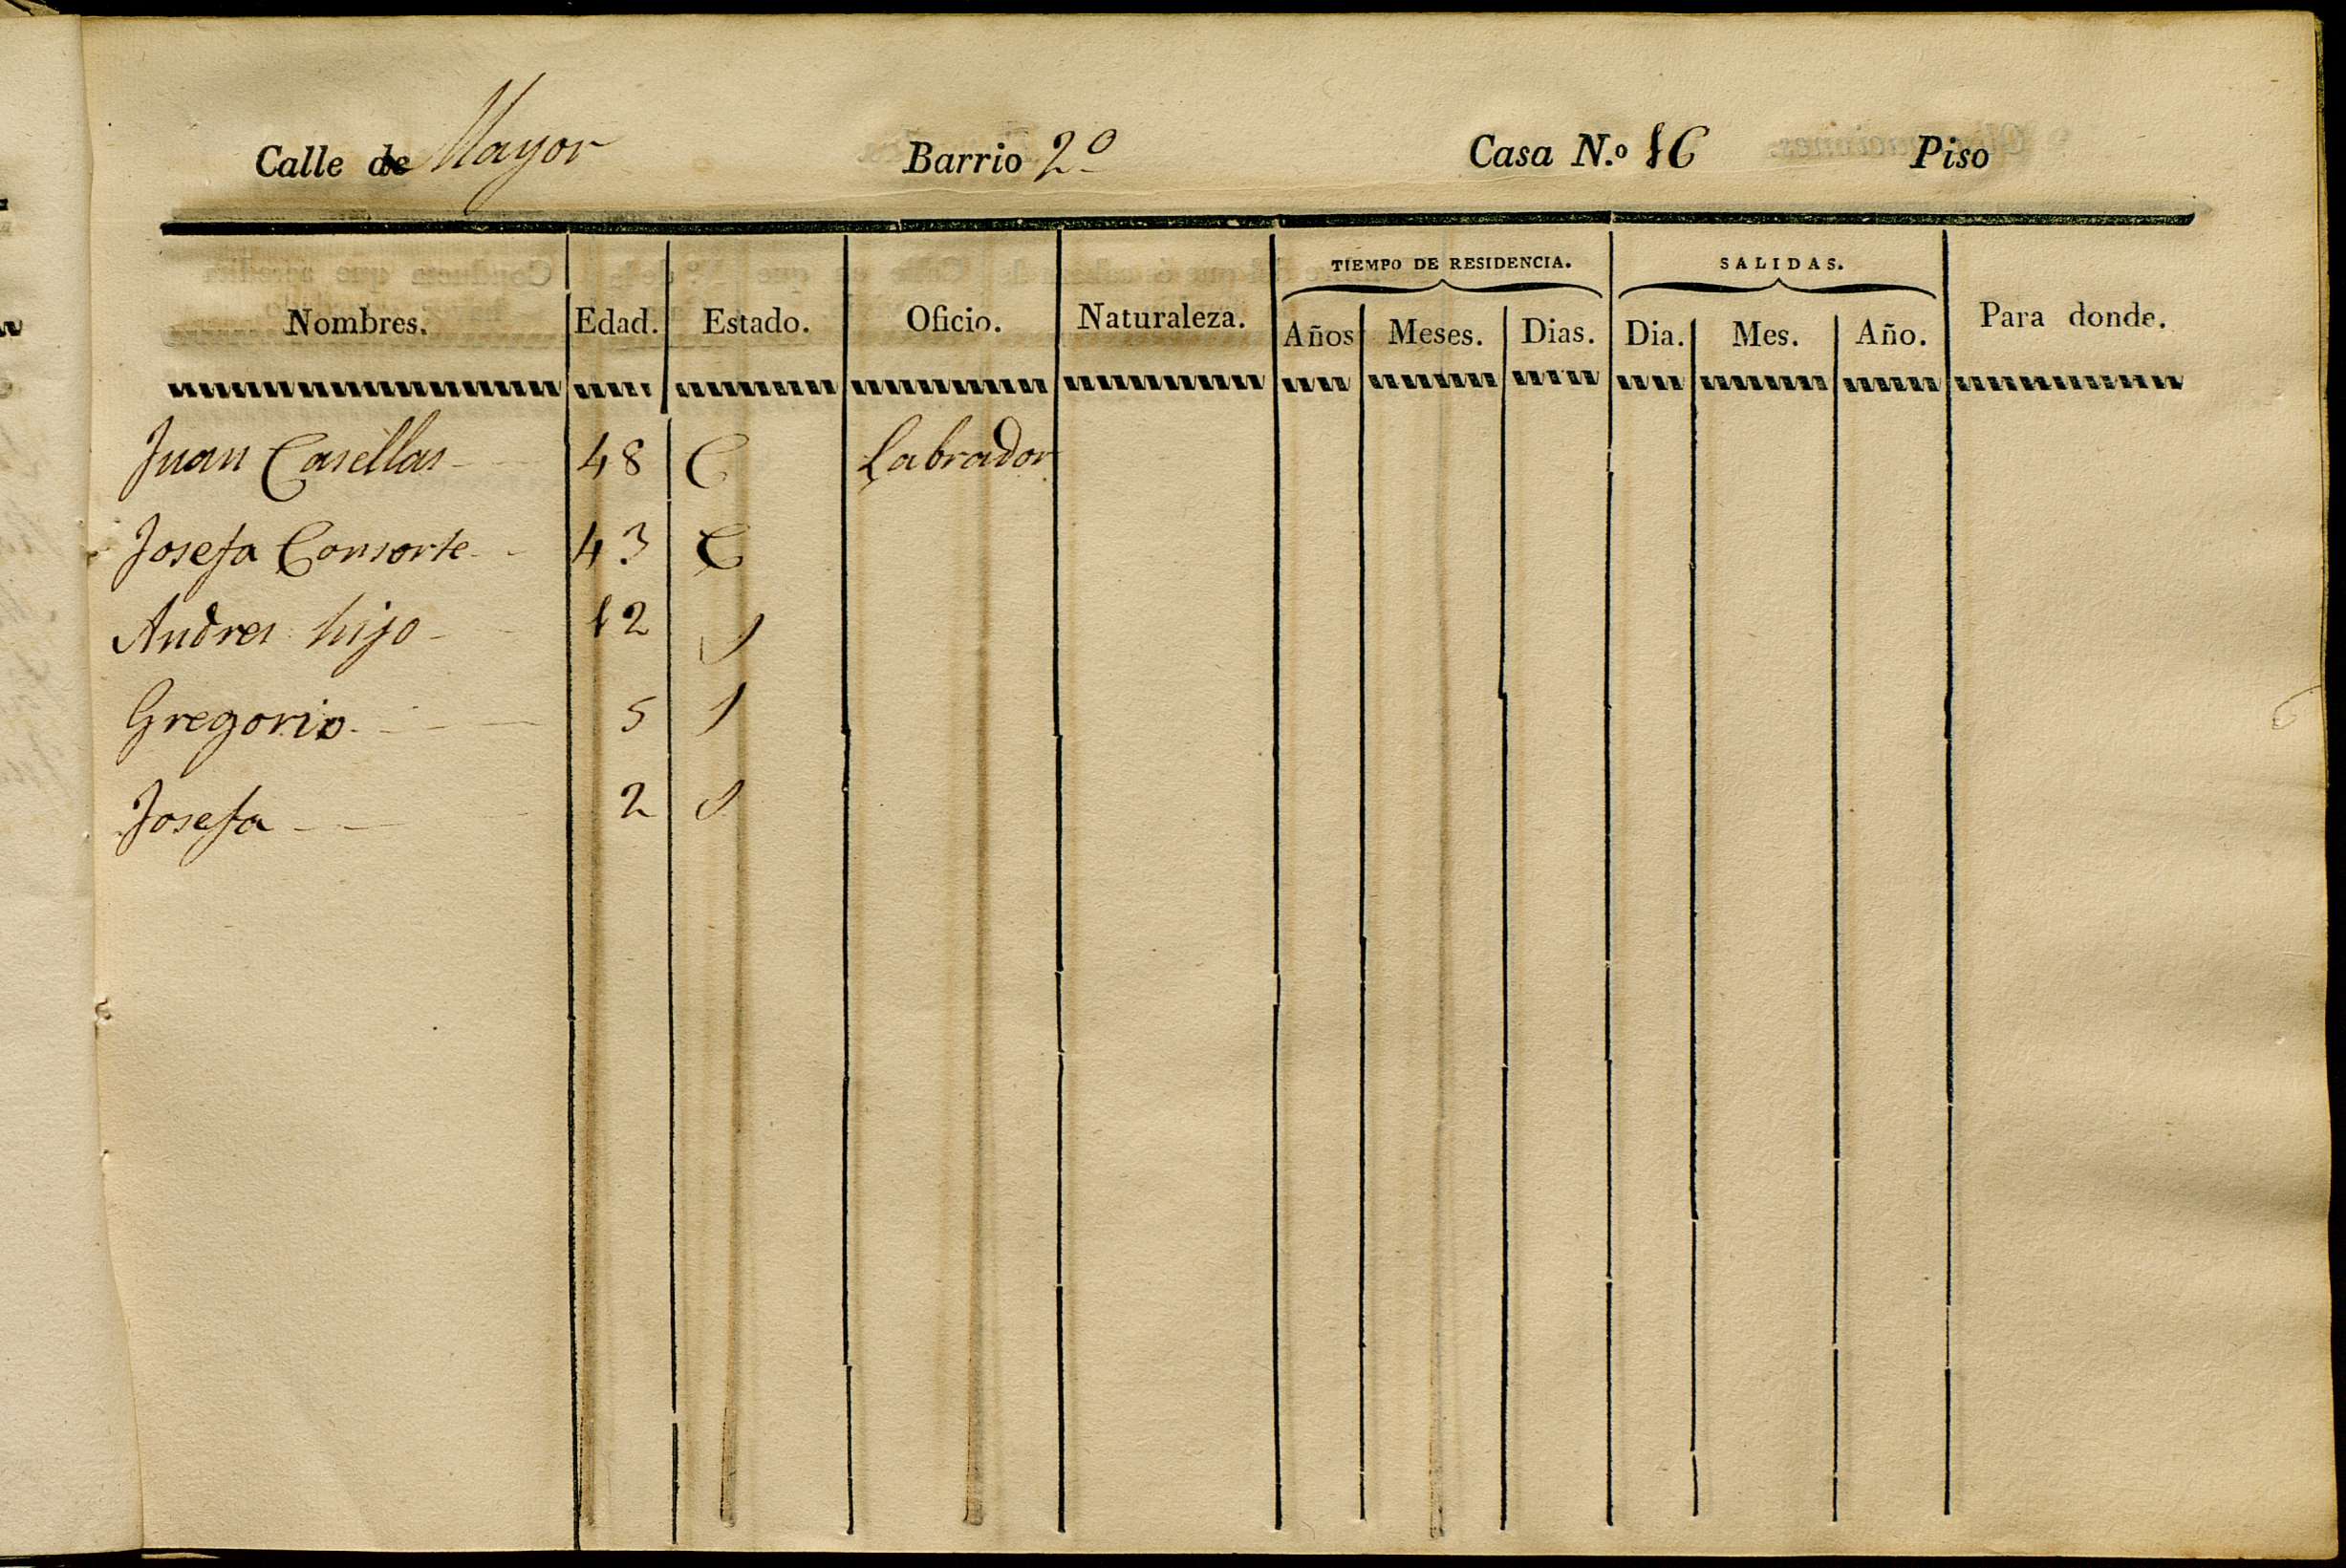 Calle de Mayor Barrio 2º Casa N.º 16 Piso
TIEMPO DE RESIDENCIA. SALIDAS.
Nombres. Edad. Estado. Oficio. Naturaleza. Años Meses. Dias. Dia. Mes. Año. Para donde.
Juan Casellas 48 C Labrador
Josefa Consorte 43 C
Andres hijo 12 S
Gregorio 5 S
Josefa 2 S